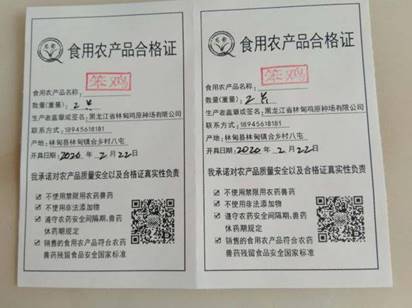 食用农产品合格证
食用农产品名称: 笨鸡
数量(重量): 2只
生产者盖章或签名: 黑龙江省林甸鸡原种场有限公司
联系方式: 18945618181
产地: 林甸县林甸镇合乡村八屯
开具日期: 2020年2月22日
我承诺对农产品质量安全以及合格证真实性负责
☑ 不使用禁限用农药兽药
☑ 不使用非法添加物
☑ 遵守农药安全间隔期、兽药
休药期规定
☑ 销售的食用农产品符合农药
兽药残留食品安全国家标准
食用农产品合格证
食用农产品名称: 笨鸡
数量(重量): 2只
生产者盖章或签名: 黑龙江省林甸鸡原种场有限公司
联系方式: 18945618181
产地: 林甸县林甸镇合乡村八屯
开具日期: 2020年2月22日
我承诺对农产品质量安全以及合格证真实性负责
☑ 不使用禁限用农药兽药
☑ 不使用非法添加物
☑ 遵守农药安全间隔期、兽药
休药期规定
☑ 销售的食用农产品符合农药
兽药残留食品安全国家标准